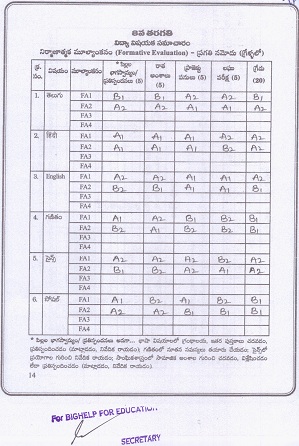 8వ తరగతి
విద్యా విషయక సమాచారం
నిర్మాణాత్మక మూల్యాంకనం (Formative Evaluation) - ప్రగతి నమోదు (గ్రేడ్లలో)
క్ర. సం. విషయం మూల్యాంకనం * పిల్లల భాగస్వామ్యం/ ప్రతిస్పందనలు (5) రాత అంశాలు (5) ప్రాజెక్టు పనులు (5) లఘు పరీక్ష (5) గ్రేడు (20)
1. తెలుగు FA1 B1 B1 A2 A2 B1
FA2 A2 A2 A1 A1 A2
FA3
FA4
2. हिंदी FA1 A1 A1 A1 A2 A2
FA2 A1 A1 A1 B2 A2
FA3
FA4
3. English FA1 A2 A2 A1 A1 A2
FA2 B2 B1 A1 A1 B1
FA3
FA4
4. గణితం FA1 A1 A2 B1 B2 B1
FA2 B2 A1 B2 B2 B1
FA3
FA4
5. సైన్స్ FA1 A2 A2 A2 B2 A2
FA2 B1 B2 A2 A1 A2
FA3
FA4
6. సోషల్ FA1 A1 B2 A1 B1 B1
FA2 B2 B1 B2 B2 B2
FA3
FA4
* పిల్లల భాగస్వామ్యం/ ప్రతిస్పందనలు అనగా... భాషా విషయాలలో గ్రంథాలయ, ఇతర పుస్తకాలు చదవడం,
ప్రతిస్పందించడం (మాట్లాడడం, నివేదిక రాయడం); గణితంలో నూతన సమస్యలు తయారు చేయడం; సైన్స్‌లో
ప్రయోగాల గురించి నివేదిక రాయడం; సాంఘికశాస్త్రంలో సామాజిక అంశాల గురించి చదవడం, విశ్లేషించడం
లేదా ప్రతిస్పందించడం (మాట్లాడడం, నివేదిక రాయడం).
14
For BIGHELP FOR EDUCATION
SECRETARY